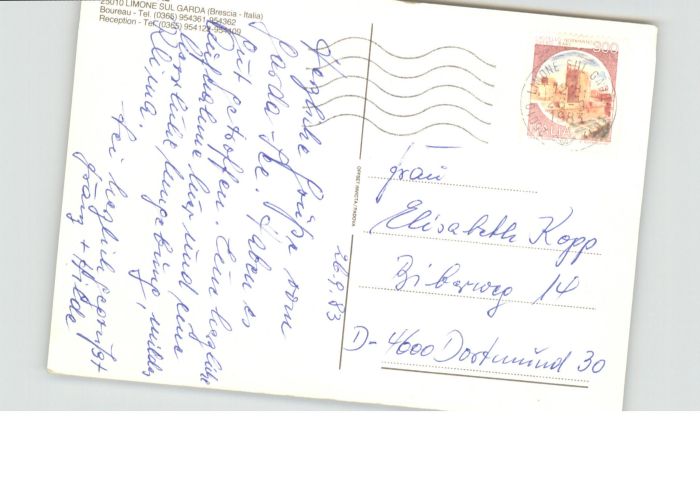 25010 LIMONE SUL GARDA (Brescia - Italia)
Boureau - Tel. (0365) 954361-954362
Reception - Tel. (0365) 954122-954109
26.9.83
Herzliche Grüße vom
Garda-See. Haben es
gut getroffen. Eine herzliche
Aufnahme hier und eine
herrliche Umgebung, mildes
Klima.
- Sei herzlich gegrüßt
Franz + Hilde
OFFSET INVICTA / PADOVA
300
LIMONE SUL GARDA
1983
ITALIA
Frau
Elisabeth Kopp
Biberweg 14
D-4600 Dortmund 30